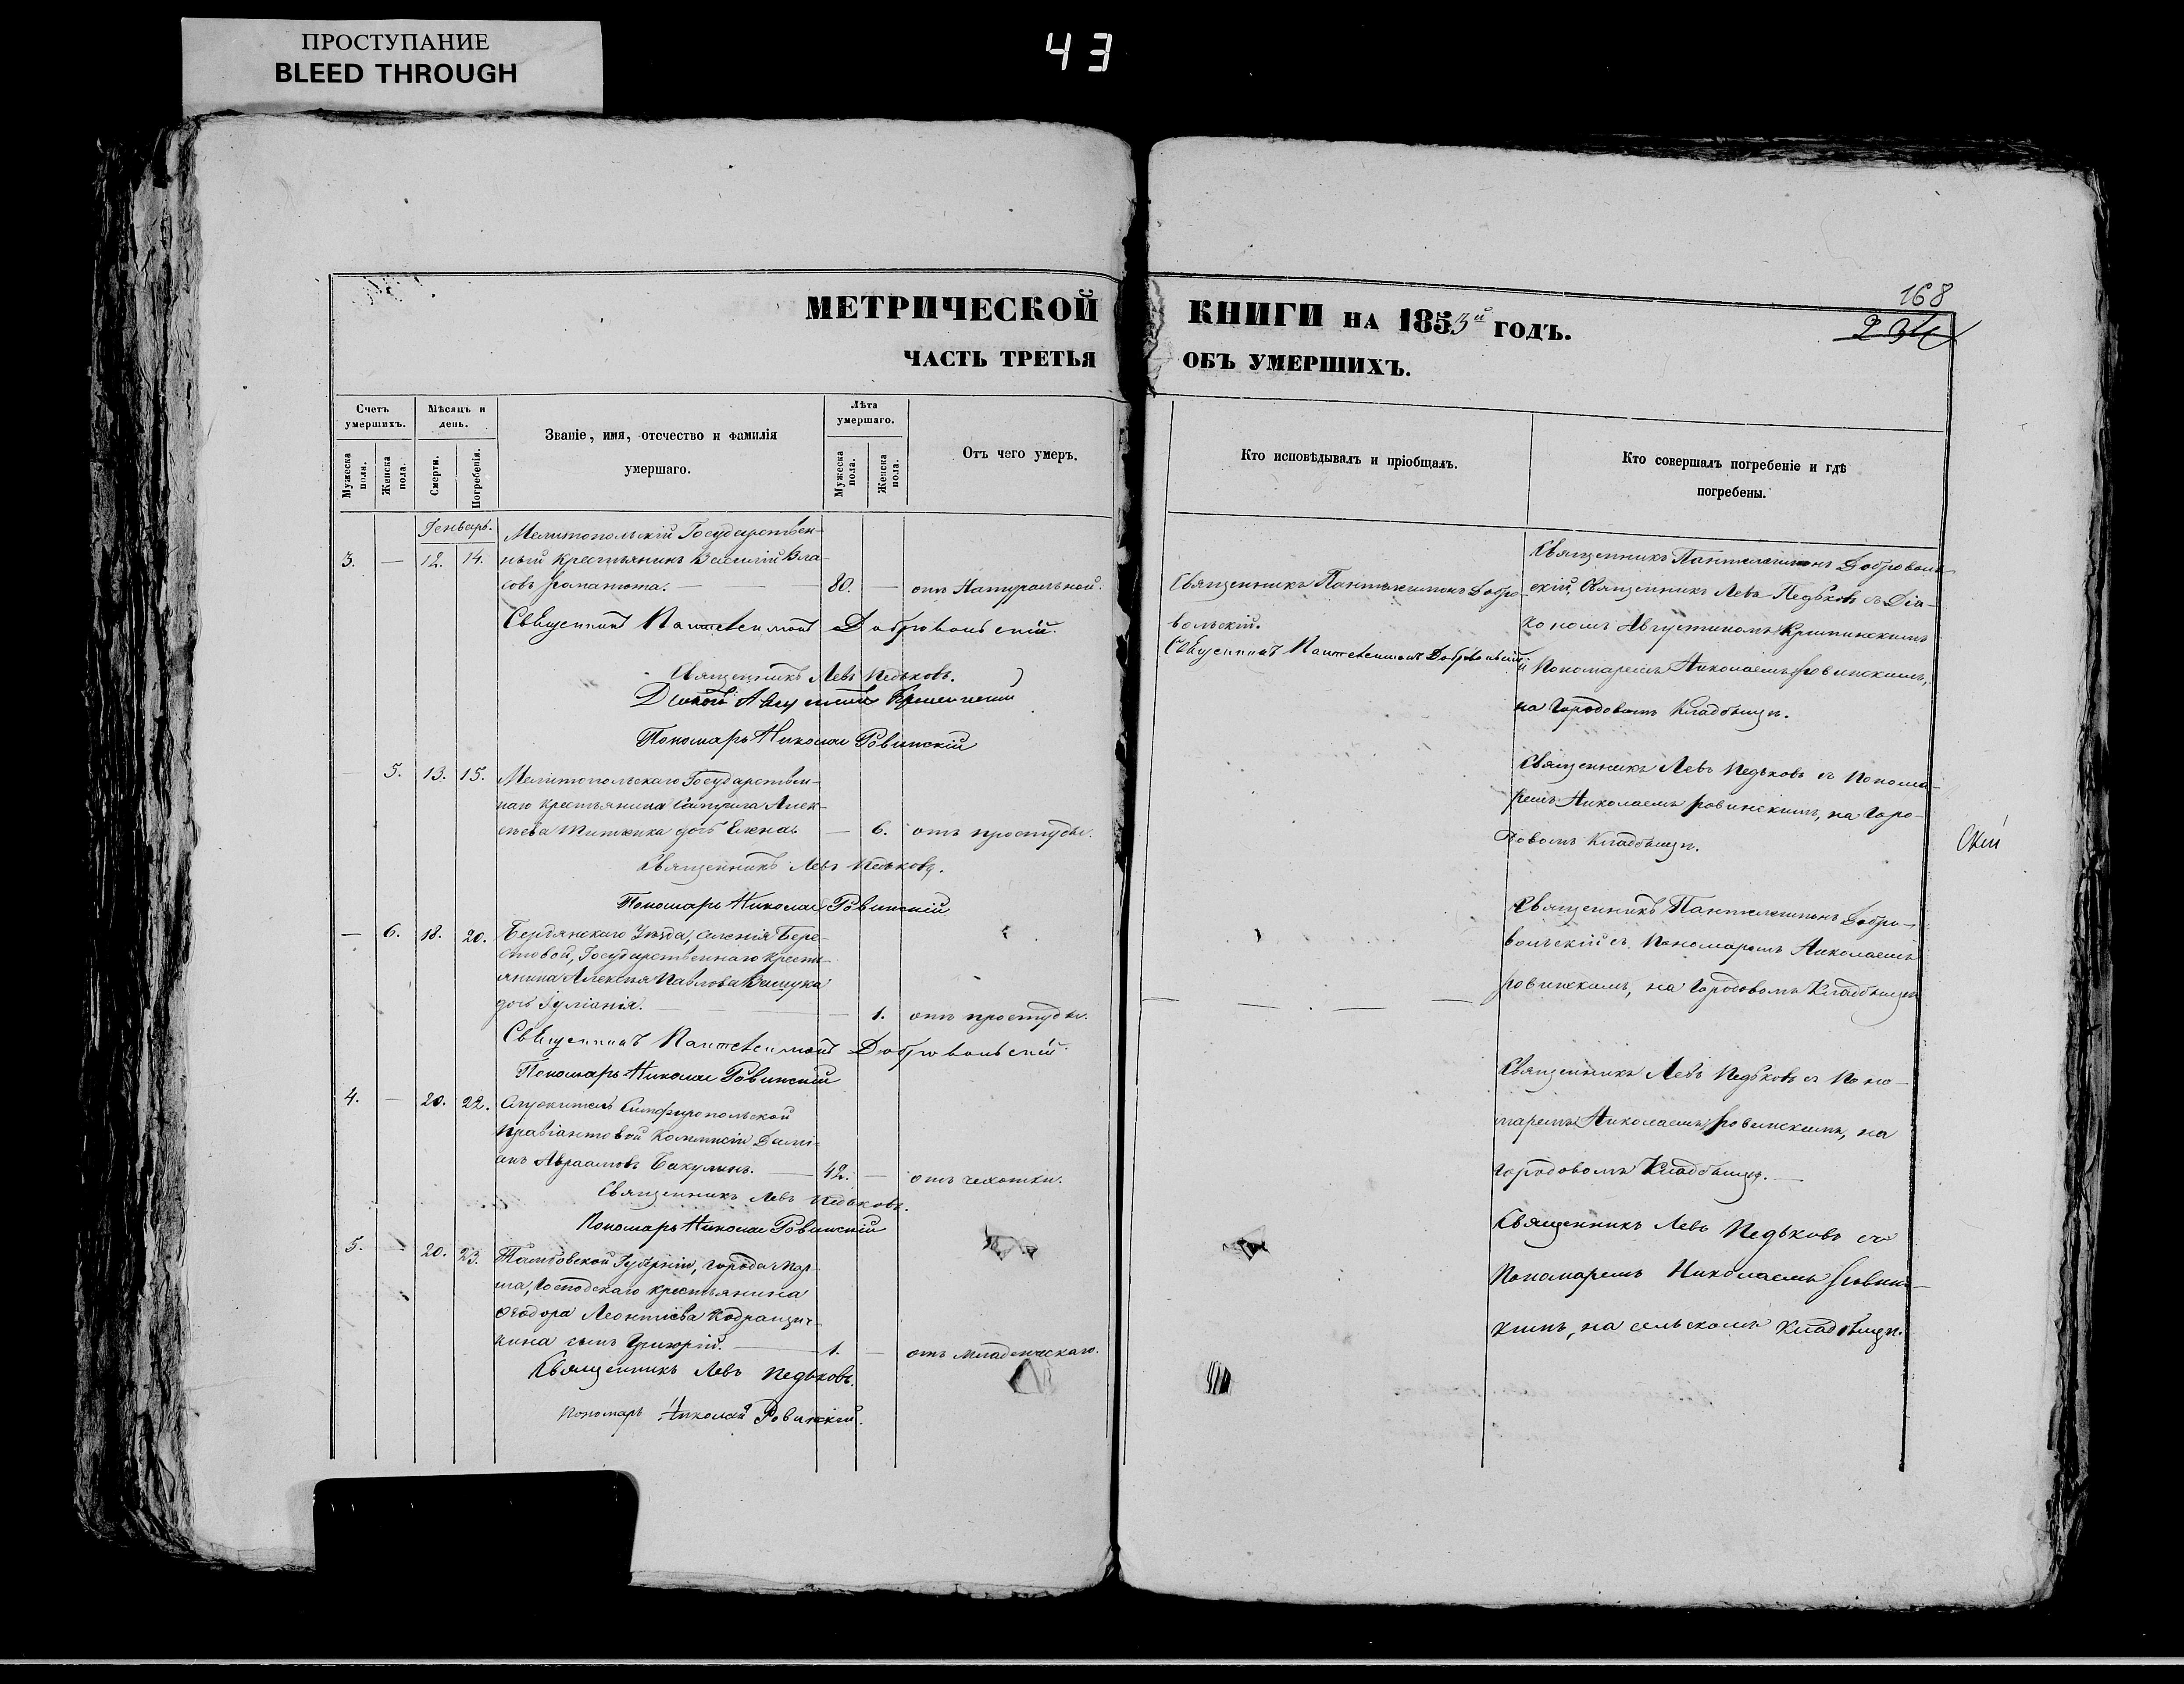 ПРОСТУПАНИЕ
BLEED THROUGH
43
168
234
МЕТРИЧЕСКОЙ КНИГИ НА 1853й ГОДЪ.
ЧАСТЬ ТРЕТЬЯ ОБЪ УМЕРШИХЪ.
Счетъ умершихъ.
Мужеска полн.
Женска пола.
Мѣсяцъ и день.
Смерти.
Погребенія.
Званіе, имя, отечество и фамилія
умершаго.
Лѣта умершаго.
Мужеска пола.
Женска пола.
Отъ чего умеръ.
Кто исповѣдывалъ и пріобщалъ.
Кто совершалъ погребеніе и гдѣ
погребены.
Генварь.
Мелитопольскій Государствен-
3. — 12. 14. ный крестьянинъ Василій Вла-
совъ — 80. — отъ Натуральной.
Священникъ Пантелеимонъ Добровольскій.
Священникъ Левъ Педьковъ.
Діаконъ Августинъ
Пономарь Николай Ровинскій
Священникъ Пантелеимонъ Добро-
вольскій.
Священникъ Пантелеимонъ Добровольскій
Священникъ Пантелеимонъ Доброволь-
скій, Священникъ Левъ Педьковъ съ Діа-
кономъ Августиномъ
и Пономаремъ Николаемъ Ровинскимъ,
на Городовомъ Кладбищѣ.
— 5. 13. 15. Мелитопольскаго Государствен-
наго крестьянина Алек-
сѣева дочь Елена. — 6. отъ простуды.
Священникъ Левъ Педьковъ.
Пономарь Николай Ровинскій
Священникъ Левъ Педьковъ съ Понома-
ремъ Николаемъ Ровинскимъ, на Горо-
довомъ Кладбищѣ.
— 6. 18. 20. Бердянскаго Уѣзда, селенія Бере-
стовой, Государственнаго крестья-
янина Алексѣя Павлова
дочь Іуліанія. — 1. отъ простуды.
Священникъ Пантелеимонъ Добровольскій.
Пономарь Николай Ровинскій
Священникъ Пантелеимонъ Добро-
вольскій съ Пономаремъ Николаемъ
Ровинскимъ, на Городовомъ Кладбищѣ
4. — 20. 22. Служитель Симферопольской
Провіантовой Коммисіи Даміанъ
Авраамовъ Бакулинъ. — 42. — отъ чехотки.
Священникъ Левъ Педьковъ.
Пономарь Николай Ровинскій
Священникъ Левъ Педьковъ съ Поно-
маремъ Николаемъ Ровинскимъ, на
городовомъ Кладбищѣ. —
5. — 20. 23. Тамбовской Губерніи, города Мор-
ша, Господскаго крестьянина
Ѳеодора Леонтіева
сынъ Григорій. — 1. — отъ младенческаго.
Священникъ Левъ Педьковъ.
Пономарь Николай Ровинскій.
Священникъ Левъ Педьковъ съ
Пономаремъ Николаемъ Ровин-
скимъ, на сельскомъ Кладбищѣ.